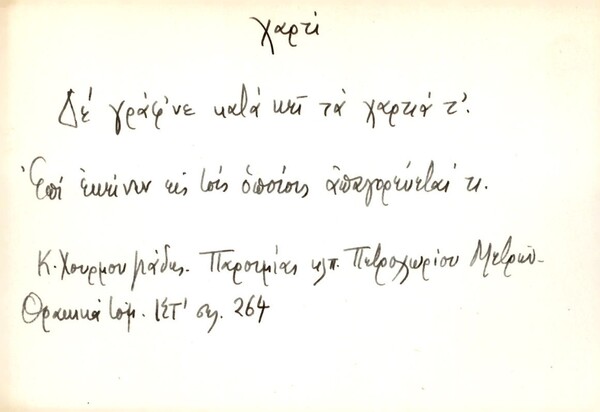 χαρτί
Δέ γράφ'νε κατά κεῖ τά χαρτιά τ'.
Ἐπί ἐκείνων εἰς τούς ὁποίους ἀπαγορεύεται τι.
Κ. Χουρμουζιάδης. Παροιμίας κλπ. Πετροχωρίου Μετρῶν-
Θρακικά τόμ. ΙΣΤ' σελ. 264